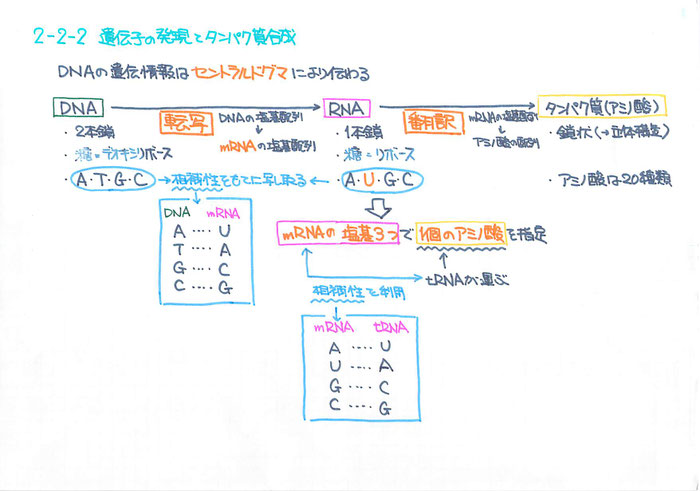 2-2-2 遺伝子の発現とタンパク質合成
DNAの遺伝情報はセントラルドグマにより伝わる
DNA
転写
DNAの塩基配列
↓
mRNAの塩基配列
RNA
翻訳
mRNAの塩基配列
↓
アミノ酸の配列
タンパク質(アミノ酸)
・2本鎖
・糖=デオキシリボース
・A・T・G・C
→相補性をもとに写し取る←
・1本鎖
・糖=リボース
・A・U・G・C
・鎖状(→立体構造)
・アミノ酸は20種類
DNA mRNA
A‥‥U
T‥‥A
G‥‥C
C‥‥G
mRNAの塩基3つで1個のアミノ酸を指定
tRNAが運ぶ
相補性を利用
mRNA tRNA
A‥‥U
U‥‥A
G‥‥C
C‥‥G